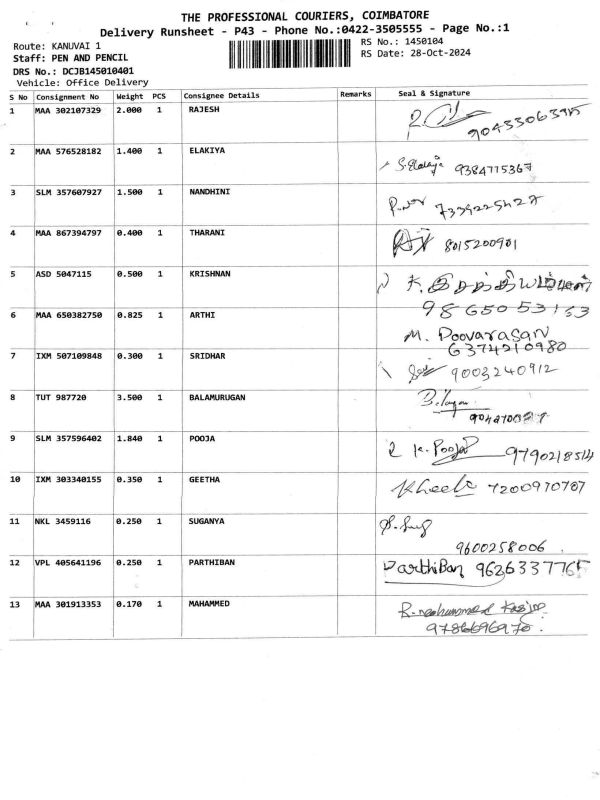 THE PROFESSIONAL COURIERS, COIMBATORE
Delivery Runsheet - P43 - Phone No.:0422-3505555 - Page No.:1
Route: KANUVAI 1
RS No.: 1450104
Staff: PEN AND PENCIL
RS Date: 28-Oct-2024
DRS No.: DCJB145010401
Vehicle: Office Delivery
S No Consignment No Weight PCS Consignee Details Remarks Seal & Signature
1 MAA 302107329 2.000 1 RAJESH
2 MAA 576528182 1.400 1 ELAKIYA 9384775367
3 SLM 357607927 1.500 1 NANDHINI
4 MAA 867394797 0.400 1 THARANI 8015200901
5 ASD 5047115 0.500 1 KRISHNAN
98650 53153
6 MAA 650382750 0.825 1 ARTHI M. Poovarasan
6374210980
7 IXM 507109848 0.300 1 SRIDHAR 9003240912
8 TUT 987720 3.500 1 BALAMURUGAN
9 SLM 357596402 1.840 1 POOJA K. Pooja 9790218514
10 IXM 303340155 0.350 1 GEETHA 7200970787
11 NKL 3459116 0.250 1 SUGANYA
9600258006
12 VPL 405641196 0.250 1 PARTHIBAN ParthiBan 9626337765
13 MAA 301913353 0.170 1 MAHAMMED
9786696970